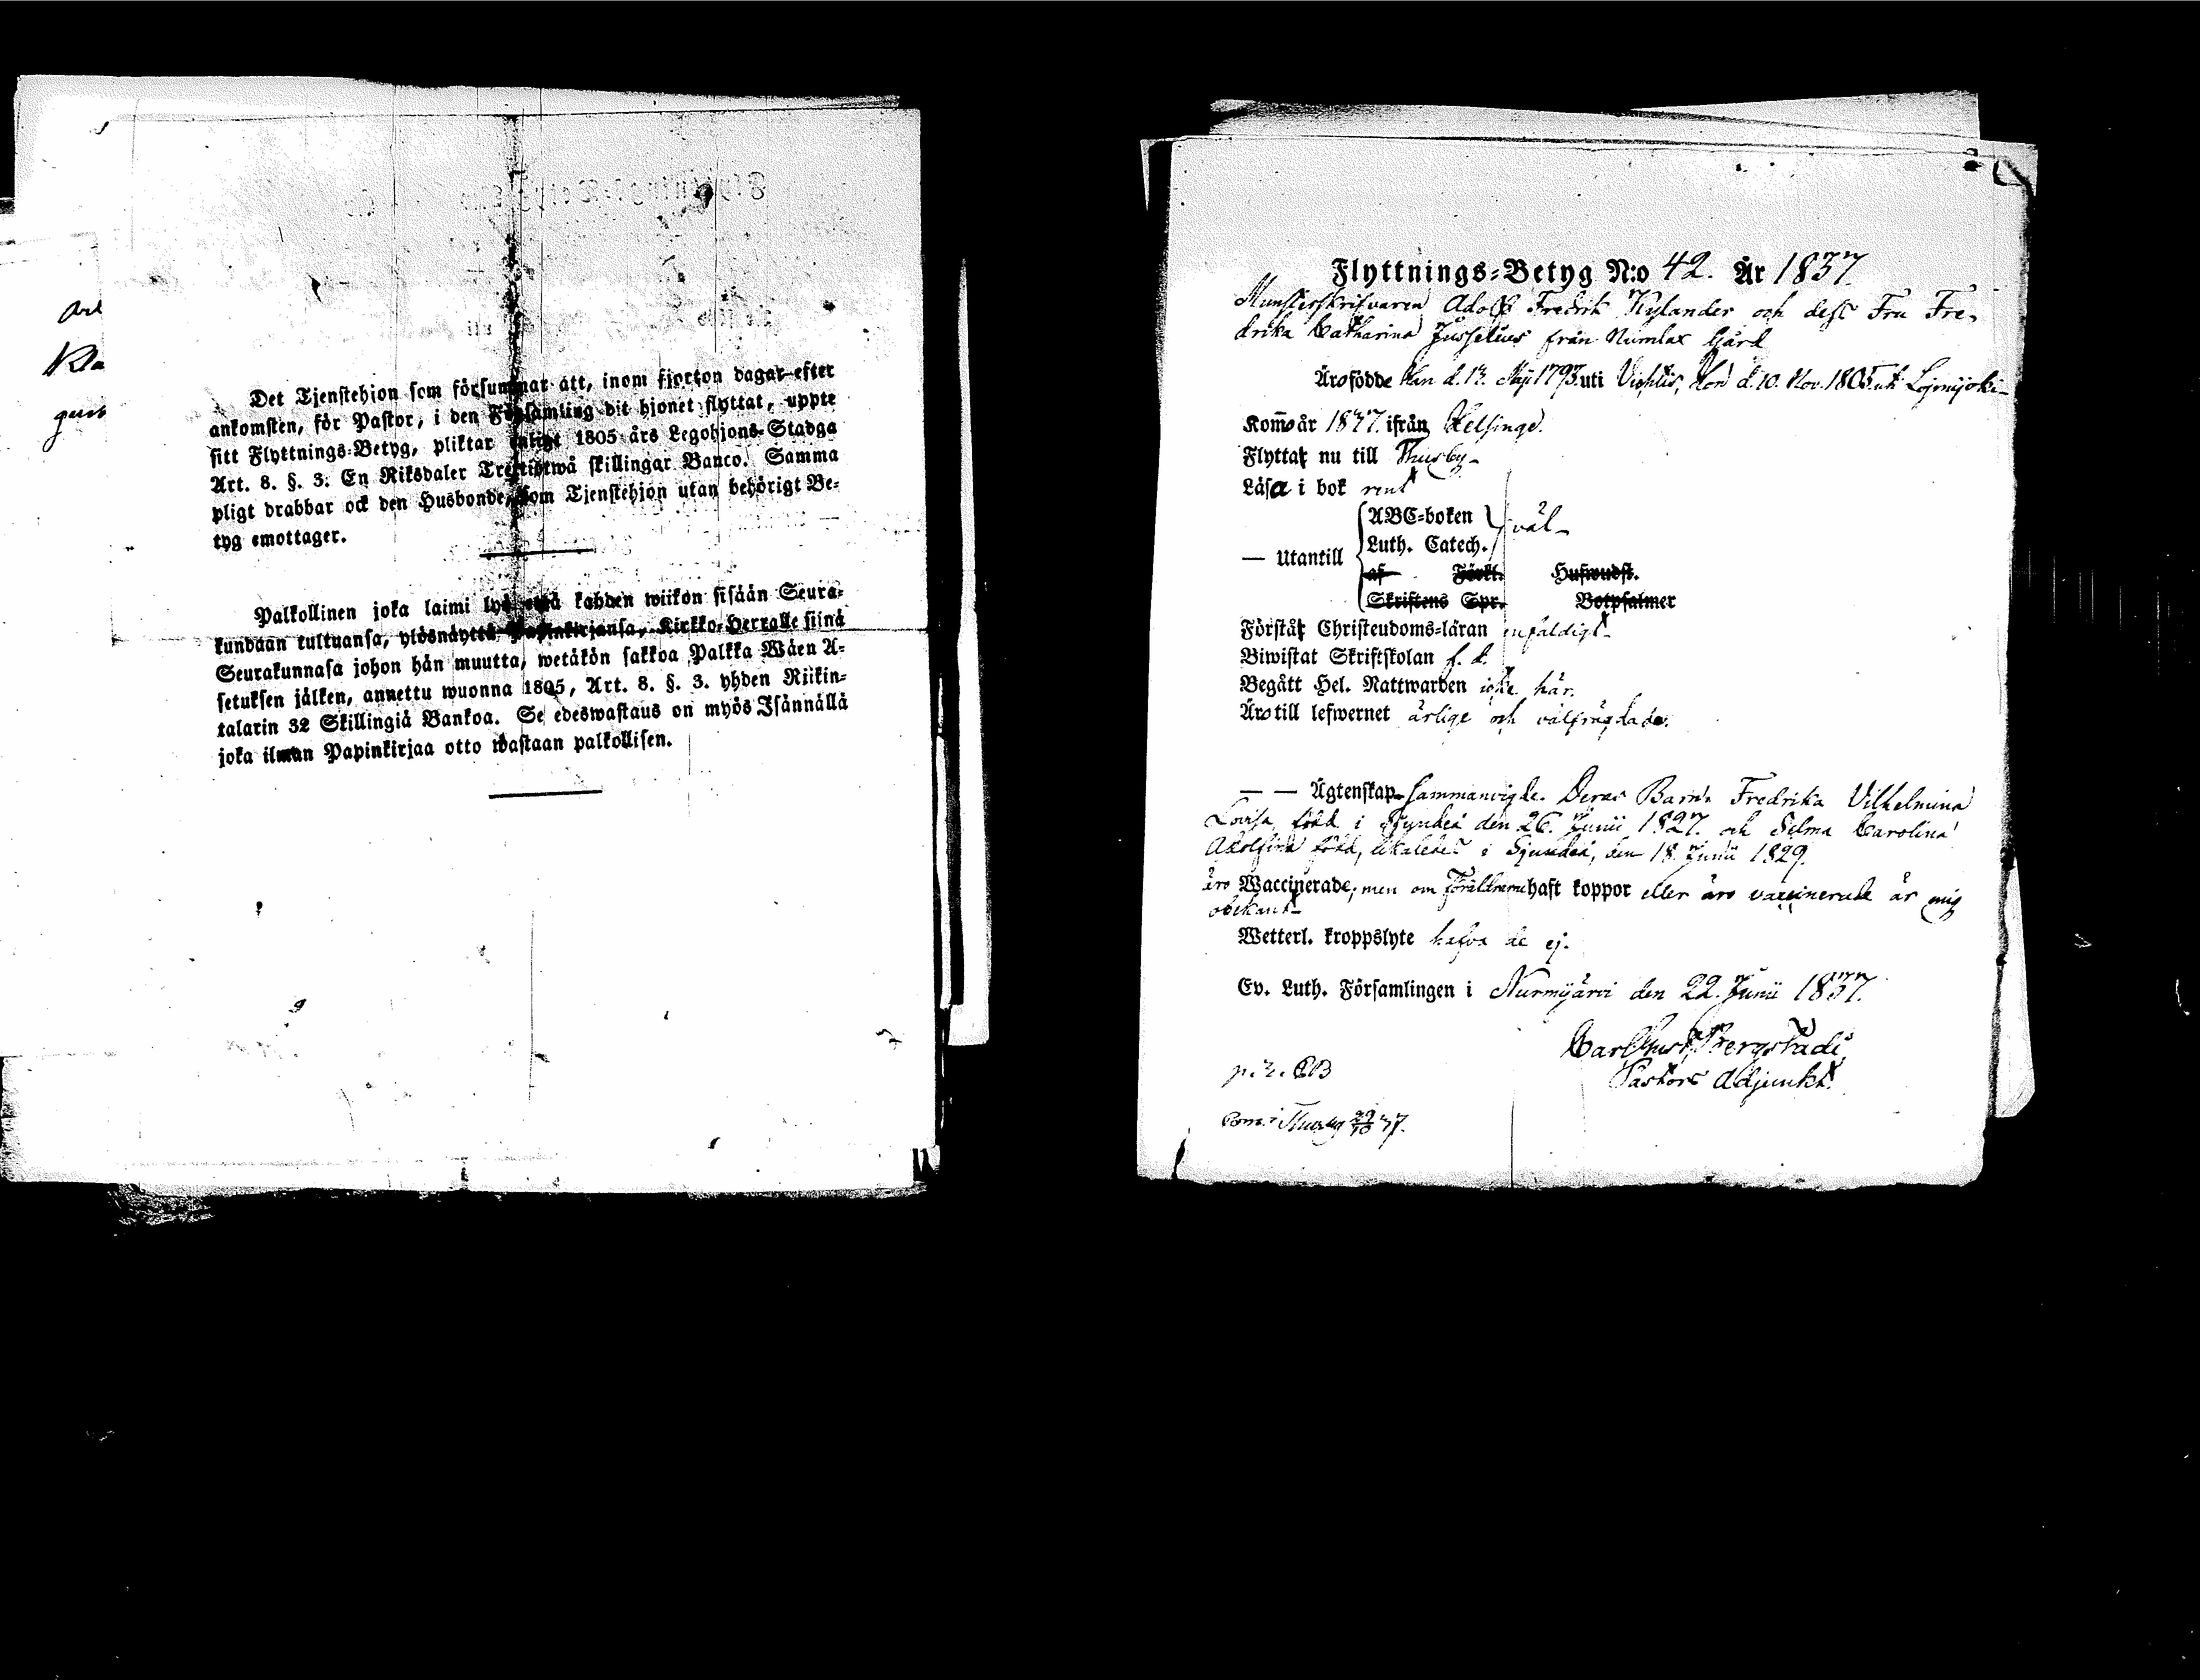 Art
Kla
gust
Det Tjenstehjon som försummar att, inom fjorton dagar efter
ankomsten, för Pastor, i den Församling dit hjonet flyttat, uppte
sitt Flyttnings-Betyg, pliktar enligt 1805 års Legohjons-Stadga
Art. 8. §. 3. En Riksdaler Trettiotwå skillingar Banco. Samma
pligt drabbar ock den Husbonde, som Tjenstehjon utan behörigt Be-
tyg emottager.
Palkollinen joka laimi lyö että kahden wiikon sisään Seura-
kundaan tultuansa, ylösnäyttä Papinkirjansa, Kirkko-Herralle siinä
Seurakunnasa johon hän muutta, wetäkön sakkoa Palkka Wäen A-
setuksen jälken, annettu wuonna 1805, Art. 8. §. 3. yhden Riikin-
talarin 32 Skillingiä Bankoa. Se edeswastaus on myös Isännällä
joka ilman Papinkirjaa otto wastaan palkollisen.
Flyttnings-Betyg N:o 42. År 1837
Munsterskrifvaren Adolf Fredrik Kylander och dess Fru Fre-
drika Catharina Jusselius från Numlax Gård
Äro födde Han d. 13. Maji 1793 uti Vichtis, Hon d. 10. Nov. 1805 uti Lojmijoki
Kommo år 1837. ifrån Helsinge.
Flytta nu till Thusby
Läsa i bok rent
ABC-boken
väl
Luth. Catech.
— Utantill
af Förkl. Hufwudst.
Skriftens Spr. Botpsalmer
Förstå Christendoms-läran enfäldigt
Biwistat Skriftskolan f. d.
Begått Hel. Nattwarden icke här.
Äro till lefwernet ärlige och välfrägdade.
— — Ägtenskap sammanvigde. Deras Barn Fredrika Vilhelmina
Lovisa, född i Sjundeå den 26. Junii 1827. och Selma Carolina
Adolfina född, likaledes i Sjundeå, den 18. Junii 1829.
äro Waccinerade; men om Föräldrarne haft koppor eller äro vaccinerade är mig
obekant
Wetterl. kroppslyte hafva de ej.
Ev. Luth. Församlingen i Nurmijärvi den 22. Junii 1837.
Carl Gust. Bergstadi
Pastors Adjunkt.
Thusby 29/10 37.